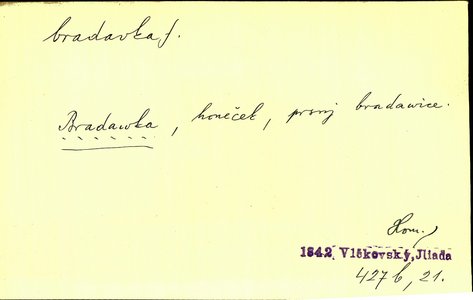 bradavka f.
Bradawka, honěček, prsnj bradawice.
Hom.
1842 Vlčkovský, Jliada
427b, 21.